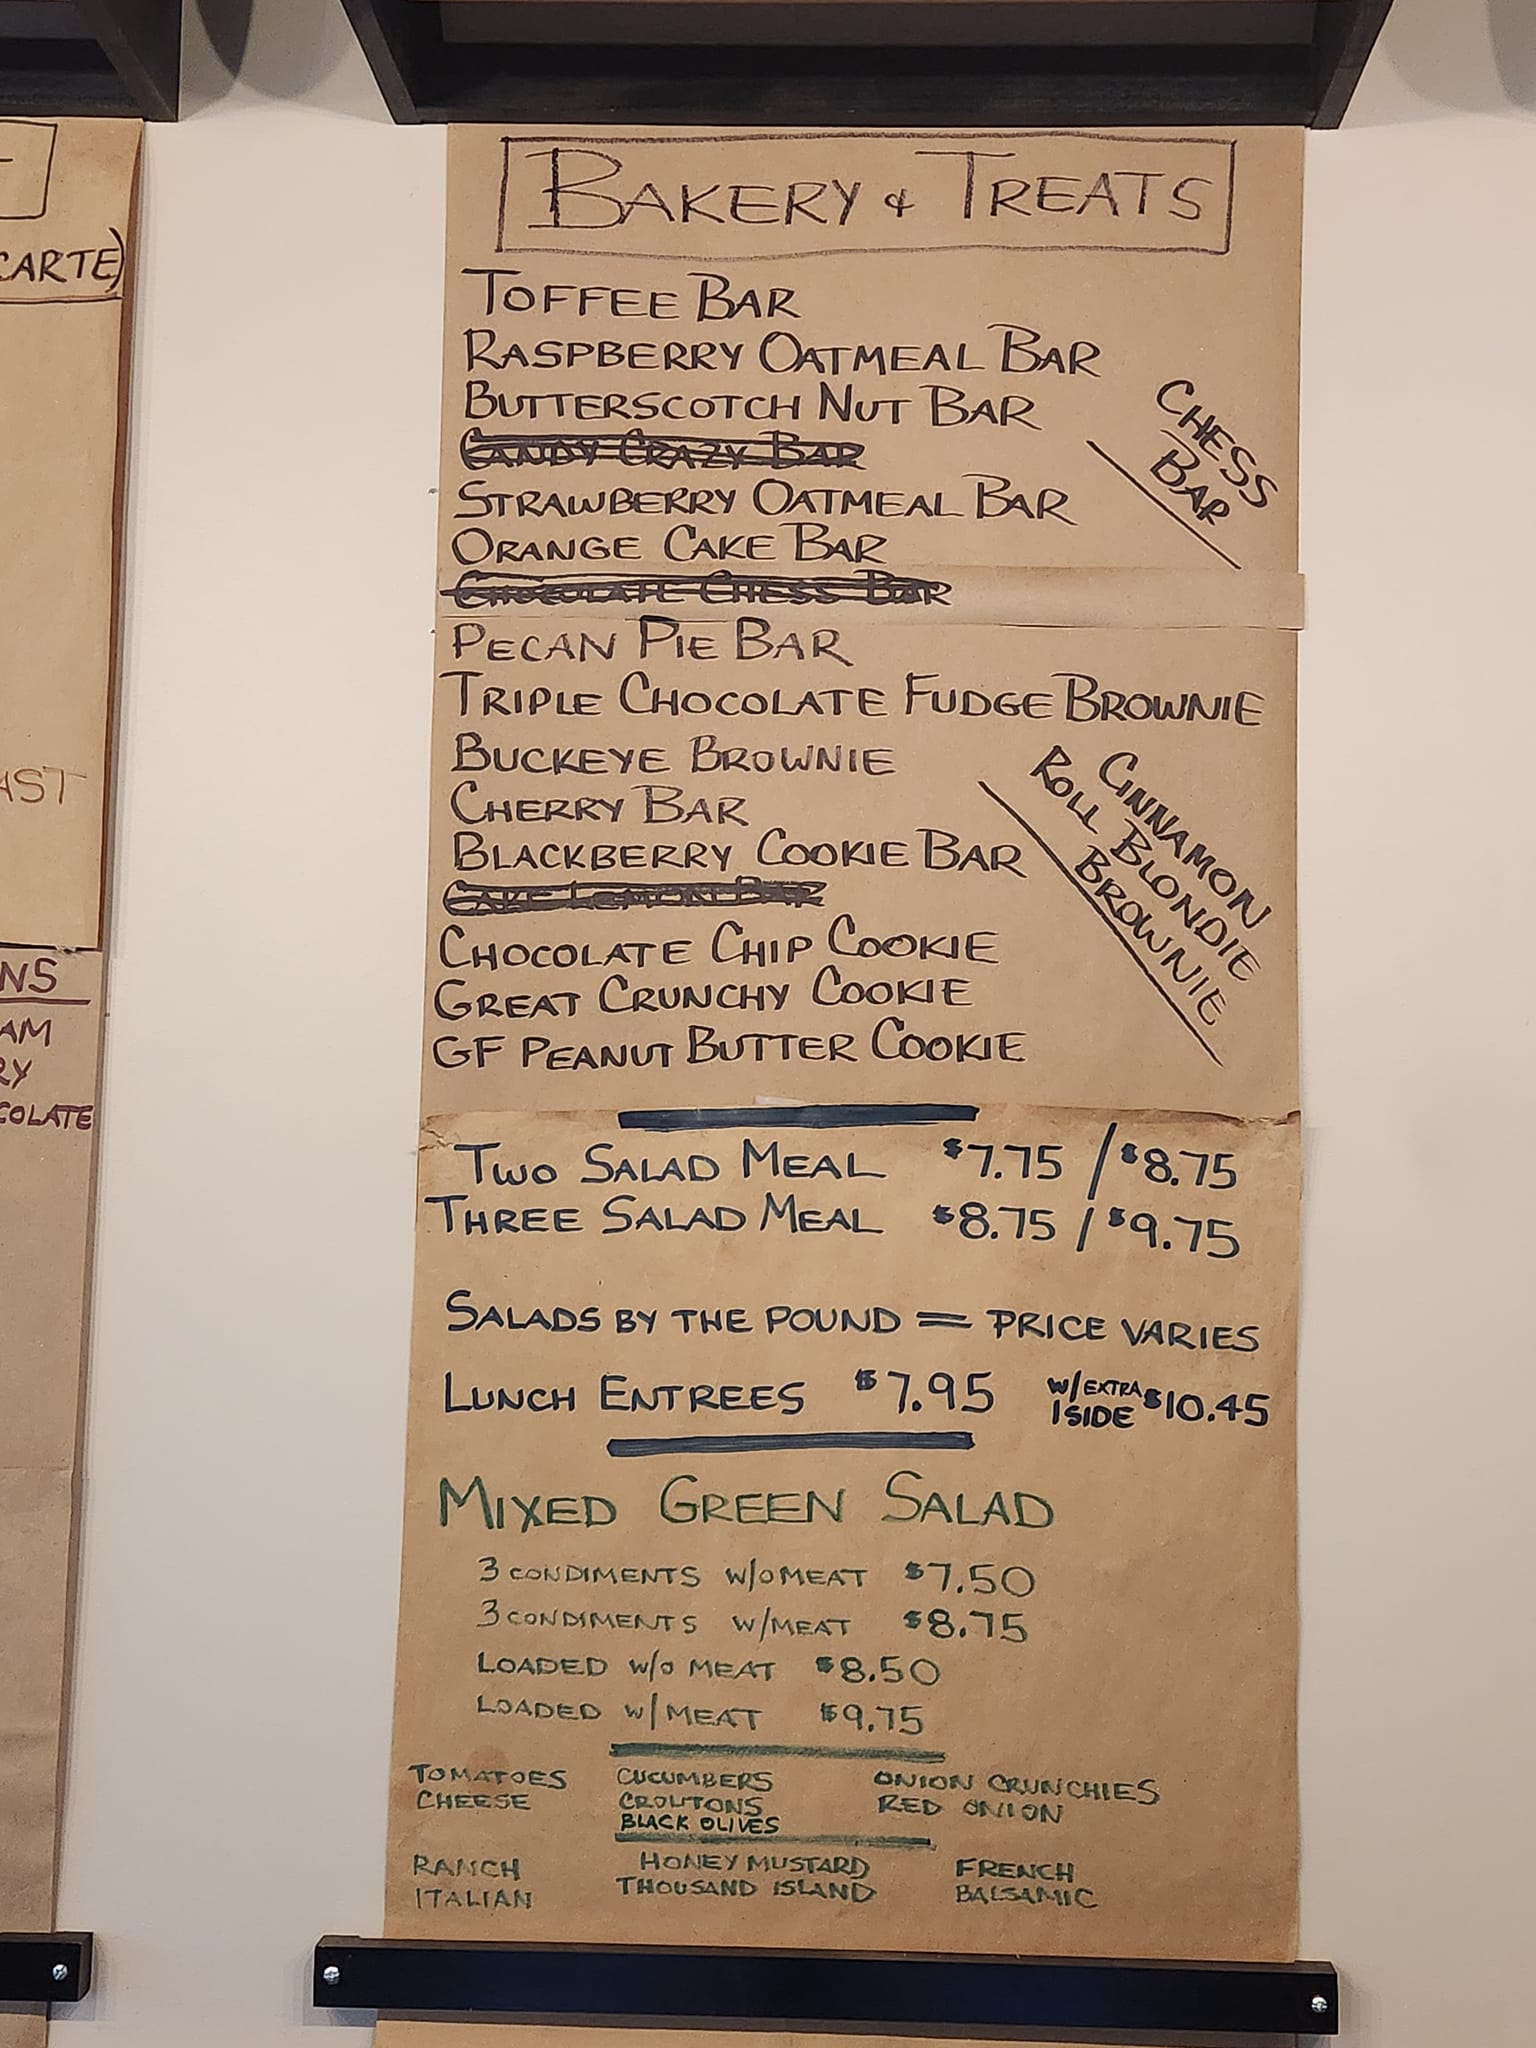 CARTE)
AST
NS
AM
RY
COLATE
BAKERY & TREATS
TOFFEE BAR
RASPBERRY OATMEAL BAR
BUTTERSCOTCH NUT BAR
CANDY CRAZY BAR
STRAWBERRY OATMEAL BAR
ORANGE CAKE BAR
CHOCOLATE CHESS BAR
CHESS
BAR
PECAN PIE BAR
TRIPLE CHOCOLATE FUDGE BROWNIE
BUCKEYE BROWNIE
CHERRY BAR
BLACKBERRY COOKIE BAR
CAKE LEMON BAR
CHOCOLATE CHIP COOKIE
GREAT CRUNCHY COOKIE
GF PEANUT BUTTER COOKIE
CINNAMON
ROLL BLONDIE
BROWNIE
TWO SALAD MEAL $7.75 / $8.75
THREE SALAD MEAL $8.75 / $9.75
SALADS BY THE POUND = PRICE VARIES
LUNCH ENTREES $7.95 W/EXTRA 1 SIDE $10.45
MIXED GREEN SALAD
3 CONDIMENTS W/O MEAT $7.50
3 CONDIMENTS W/MEAT $8.75
LOADED W/O MEAT $8.50
LOADED W/MEAT $9.75
TOMATOES CUCUMBERS ONION CRUNCHIES
CHEESE CROUTONS RED ONION
BLACK OLIVES
RANCH HONEY MUSTARD FRENCH
ITALIAN THOUSAND ISLAND BALSAMIC